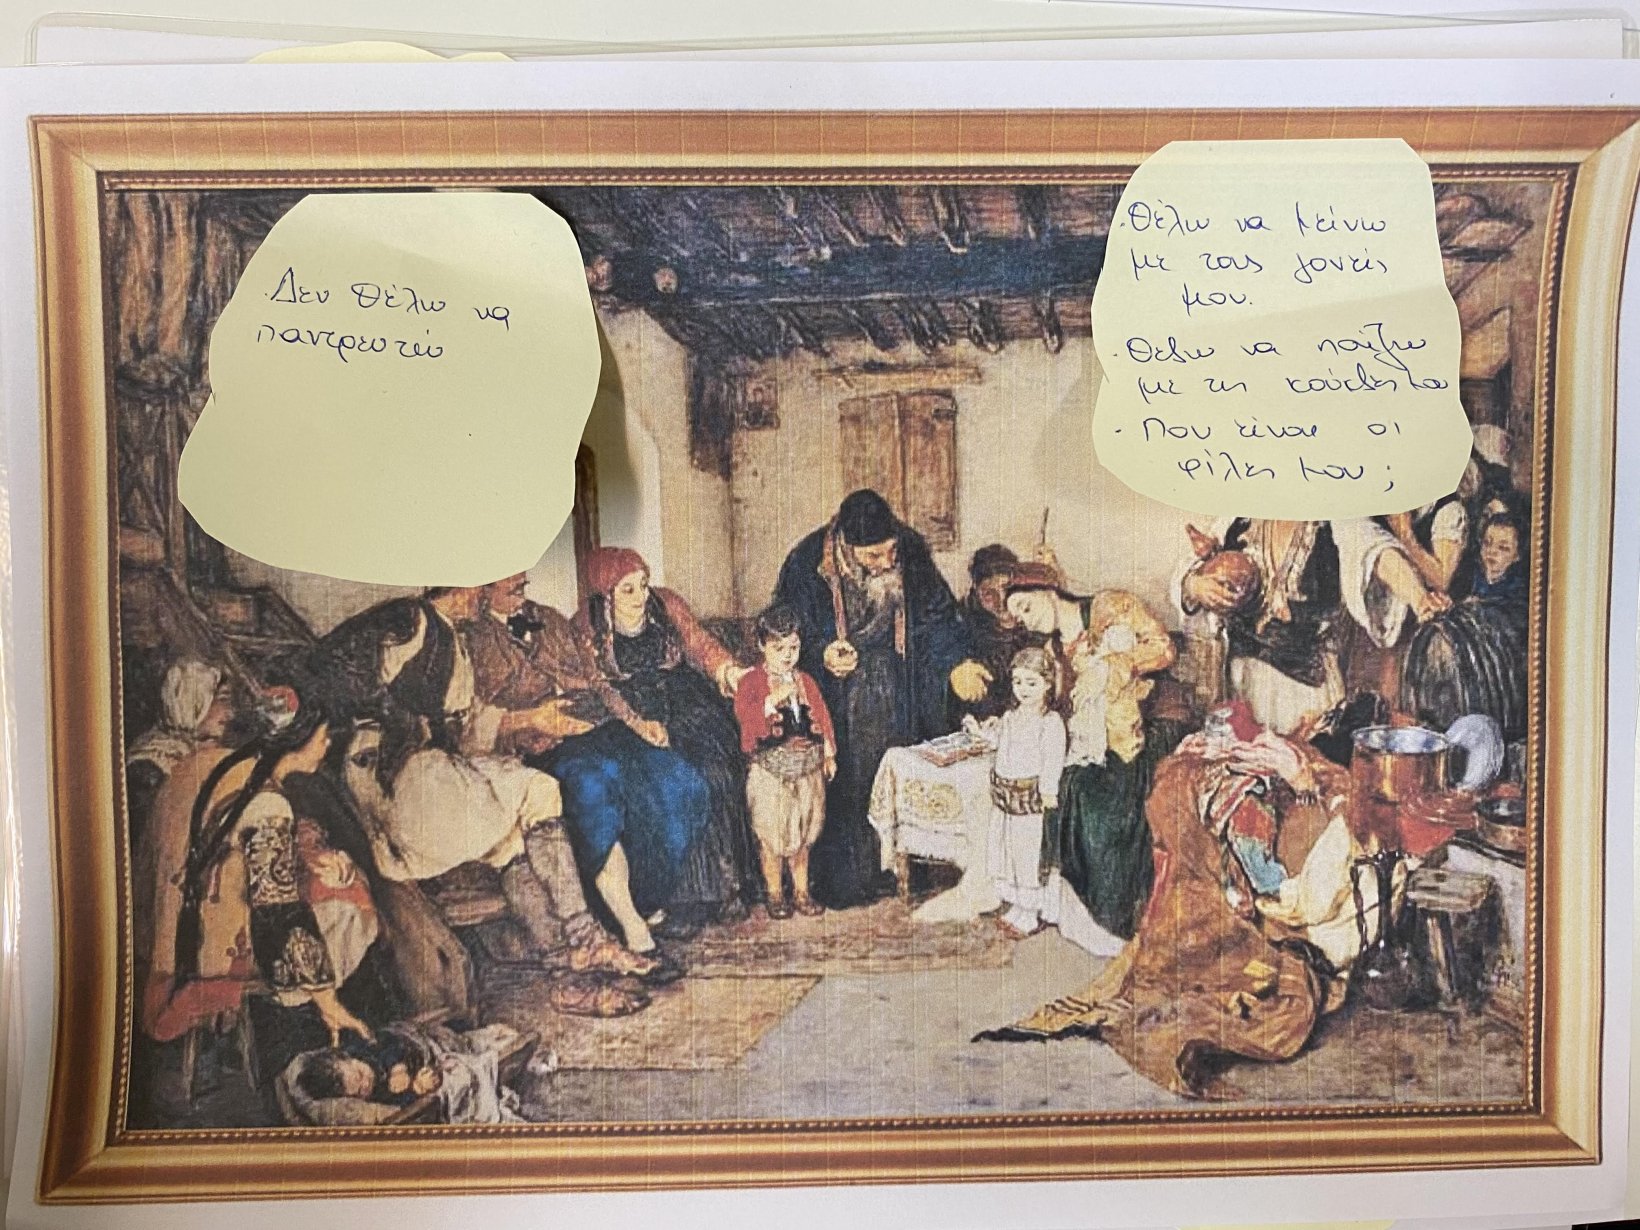 . Δεν θέλω να
παντρευτώ
. Θέλω να μείνω
με τους γονείς
μου.
. Θέλω να παίζω
με τις κούκλες μου
. Που είναι οι
φίλες μου;